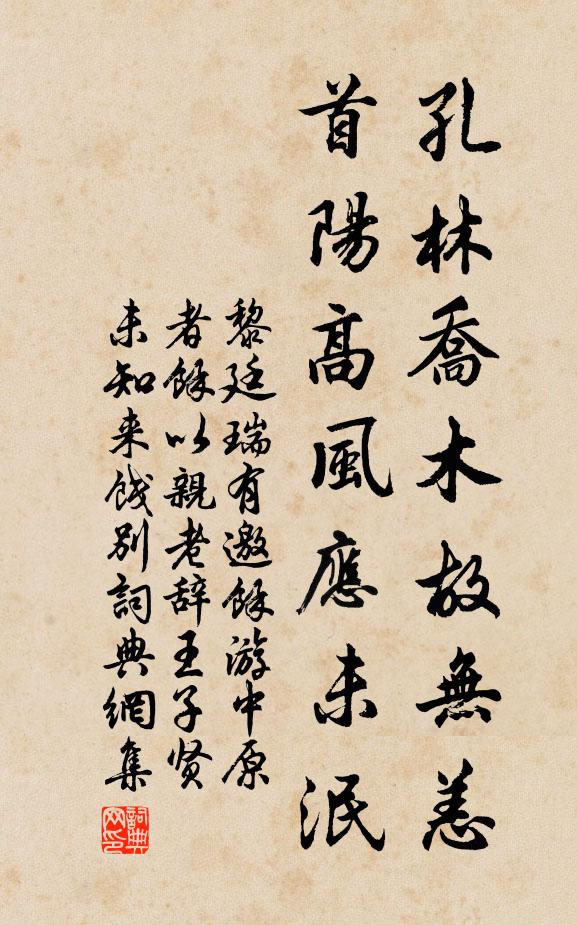 孔林喬木故無恙
首陽高風應未泯
黎廷瑞有邀餘游中原
者餘以親老辞王子贤
未知来餞别詞典網集
詞典網印